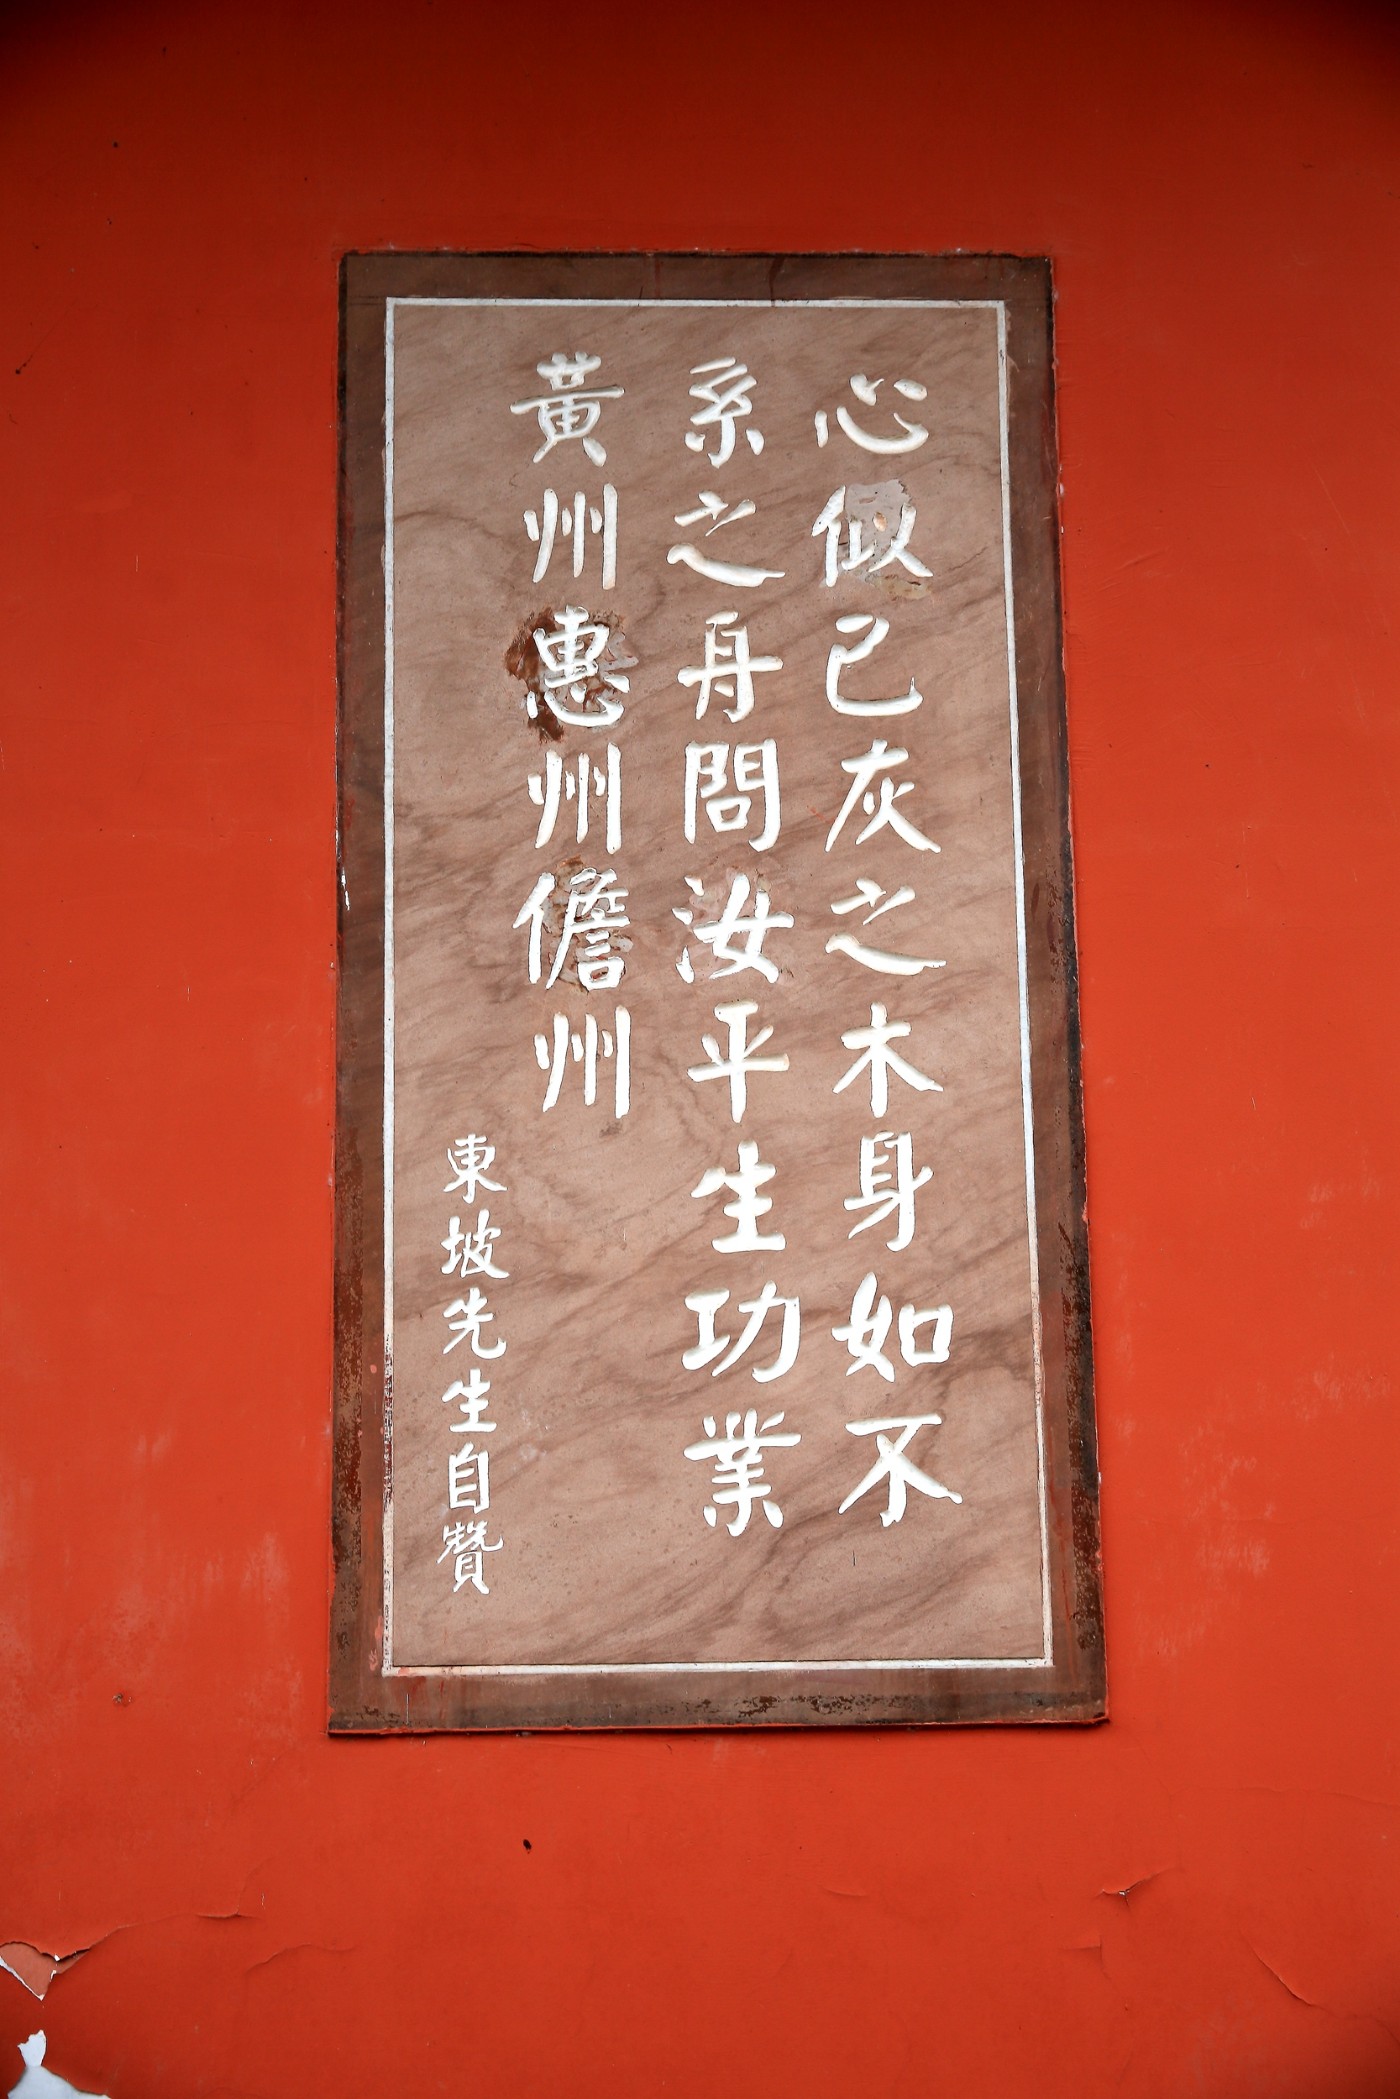 心似已灰之木身如不
系之舟問汝平生功業
黃州惠州儋州
東坡先生自贊